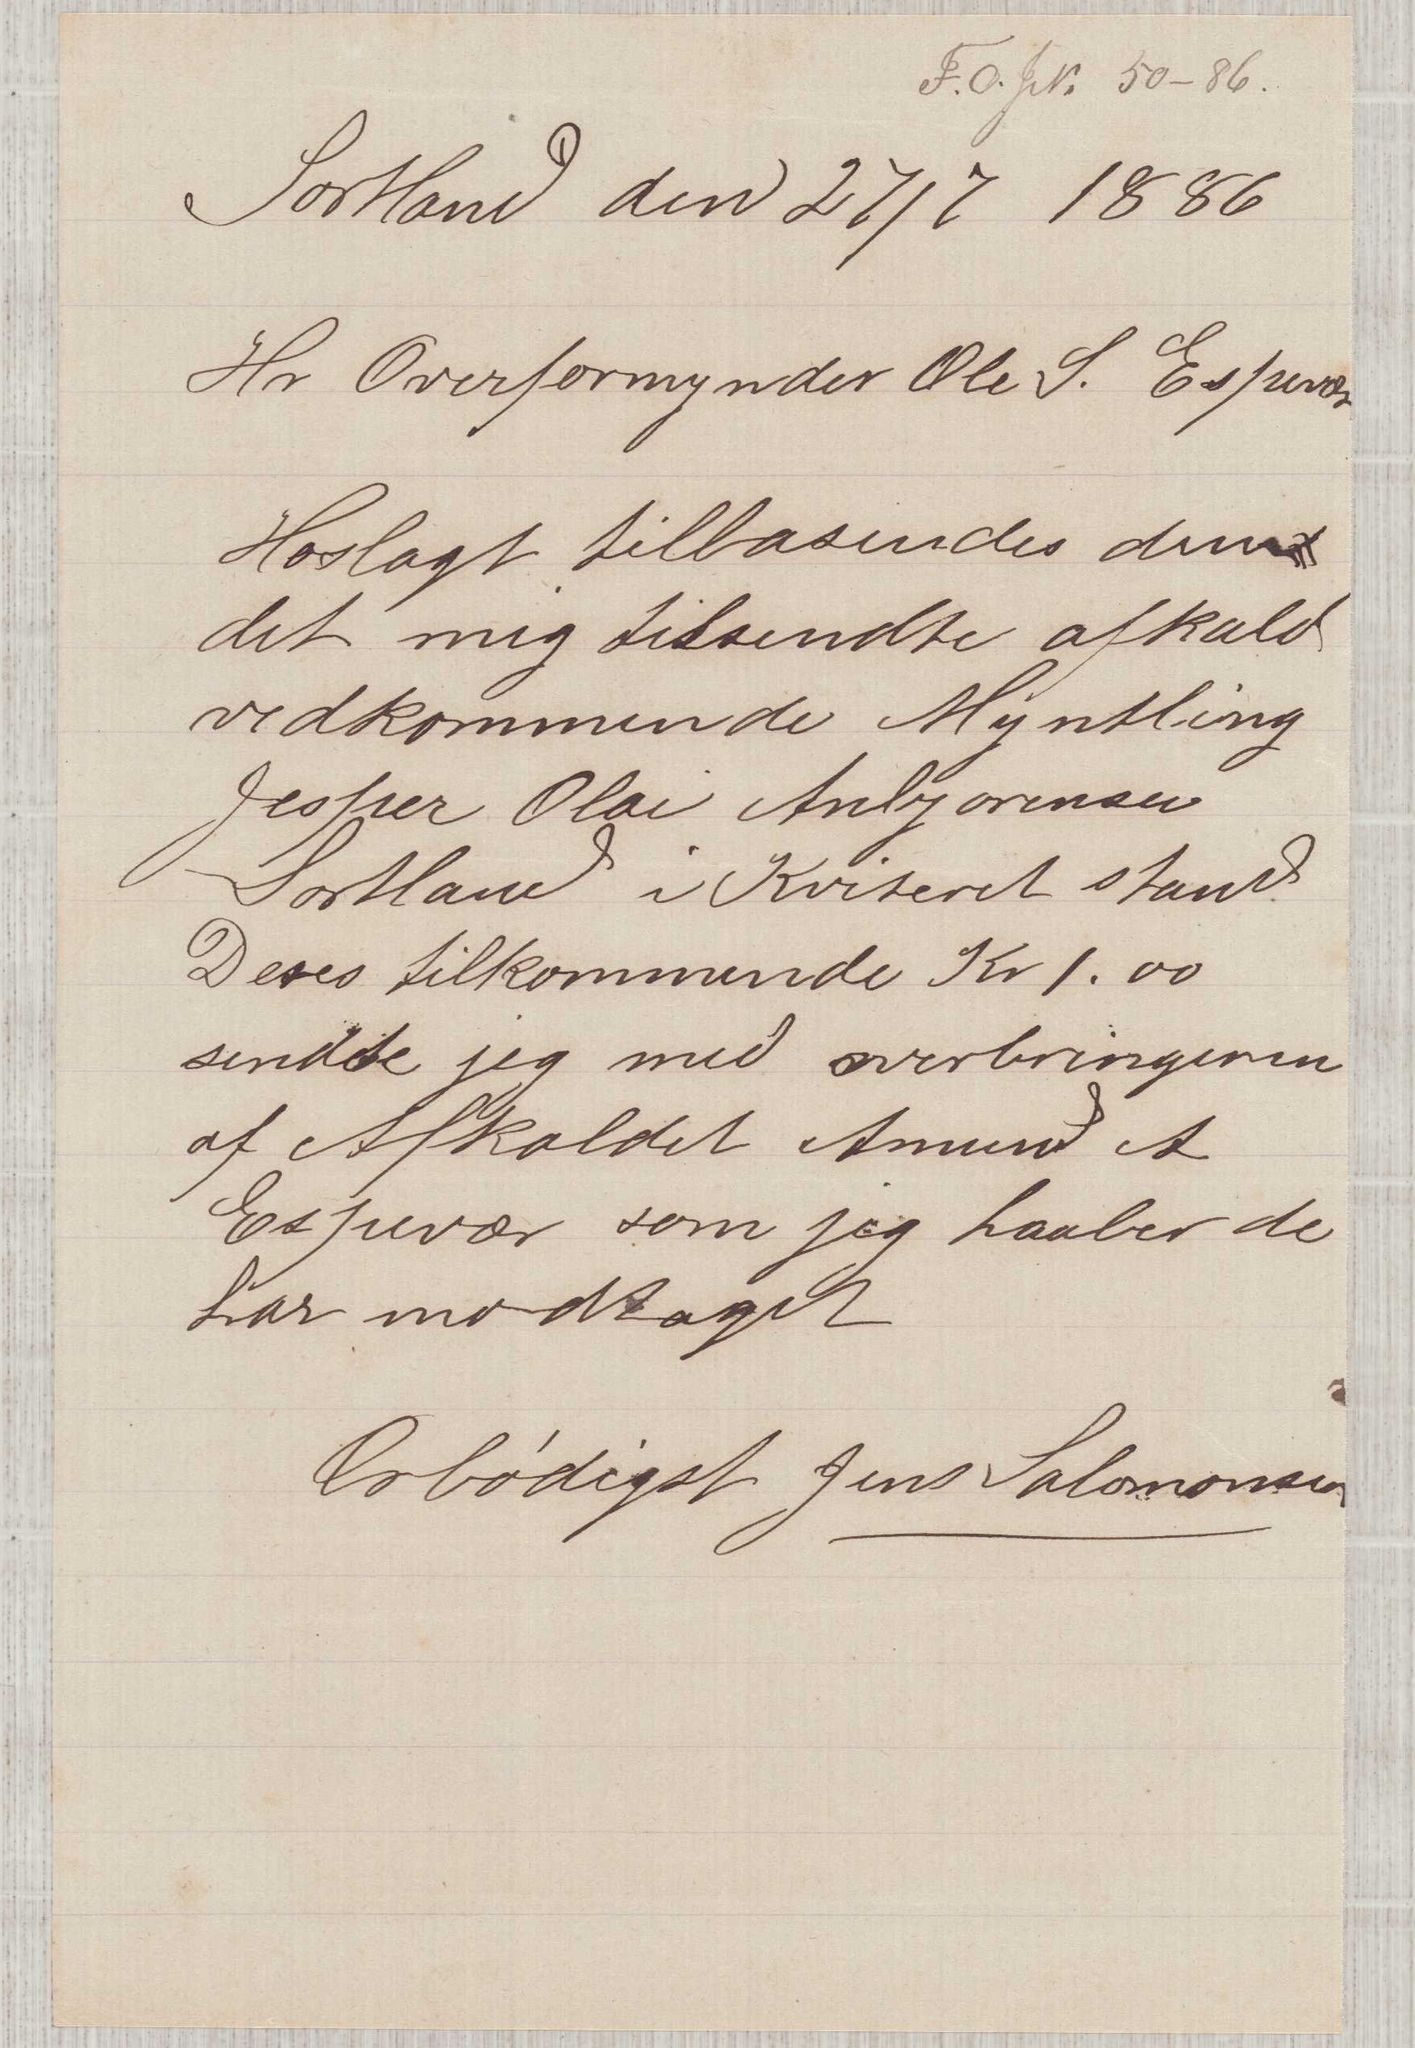 F.O.J.N. 50-86.
Sortland den 27/7 1886
Hr Overformynder Ole S. Espevær
Hoslagt tilbasendes
det mig tilsendte afkald
vedkommende Myntling
Jesper Olai Anbjorensen
Sortland i Kviteret stand
Deres tilkommende Kr 1.00
sendte jeg med overbringeren
af Afkaldet Amund A
Espevær som jeg haaber de
har modtaget
Erbódigst Jens Salomonsen